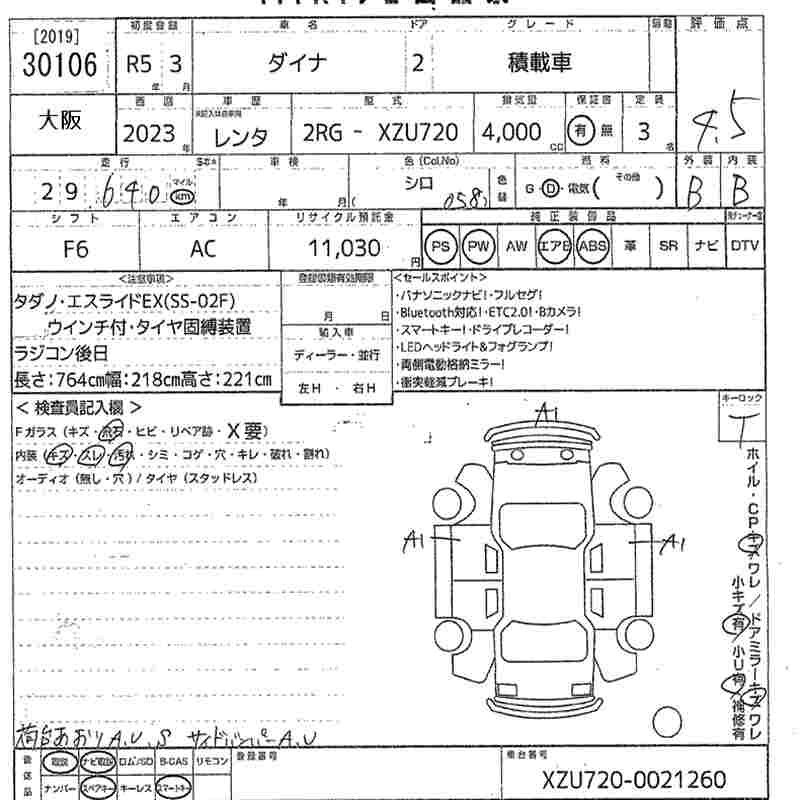 [2019]
30106
初度登録
R5 3
年 月
車名
ダイナ
ドア
2
グレード
積載車
評価点
4.5
大阪
2023
年
車歴
レンタ
型式
2RG - XZU720
排気量
4,000
CC
保証書
有 無
定員
3
名
走行
29 640
マイル
km
車検
年 月(
色(Col,No)
シロ
058)
色替
燃料
G・D・電気( その他 )
外装
B
内装
B
シフト
F6
エアコン
AC
リサイクル預託金
11,030
円
純正装備品
PS PW AW エアB ABS 革 SR ナビ DTV
<注意事項>
タダノ・エスライドEX(SS-02F)
ウインチ付・タイヤ固縛装置
ラジコン後日
長さ:764cm幅:218cm高さ:221cm
月 日
輸入車
ディーラー・並行
左H ・ 右H
<セールスポイント>
・パナソニックナビ!・フルセグ!
・Bluetooth対応!・ETC2.0!・Bカメラ!
・スマートキー!・ドライブレコーダー!
・LEDヘッドライト&フォグランプ!
・両側電動格納ミラー!
・衝突軽減ブレーキ!
< 検査員記入欄 >
Fガラス(キズ・飛石・ヒビ・リペア跡・X要)
内装(キズ・スレ・汚れ・シミ・コゲ・穴・キレ・破れ・割れ)
オーディオ(無し・穴)/タイヤ(スタッドレス)
キーロック
T
A1
A1
A1
ホイル・CPキズワレ/ドアミラーキズワレ
小キズ有/小U有/補修有
荷台あおりA.U.S サイドバンパーA.U
後送品
取説 ナビ取説 ロム/SD B-CAS リモコン
ナンバー スペアキー キーレス スマートキー
登録番号
車台番号
XZU720-0021260